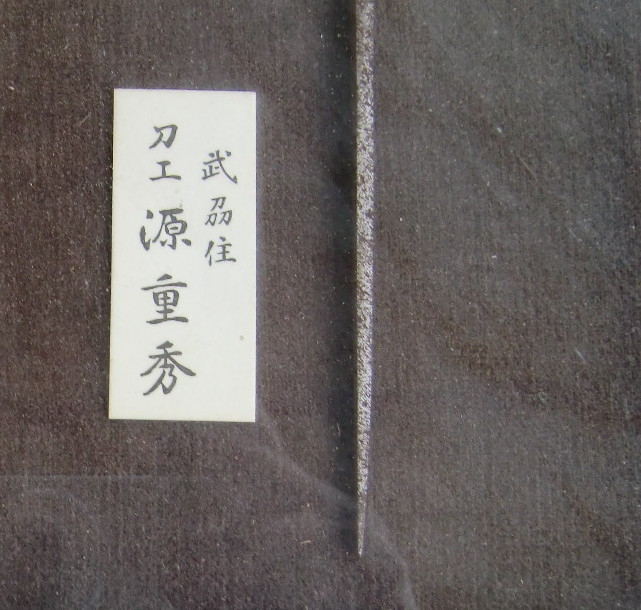 武刕住
刀工 源重秀